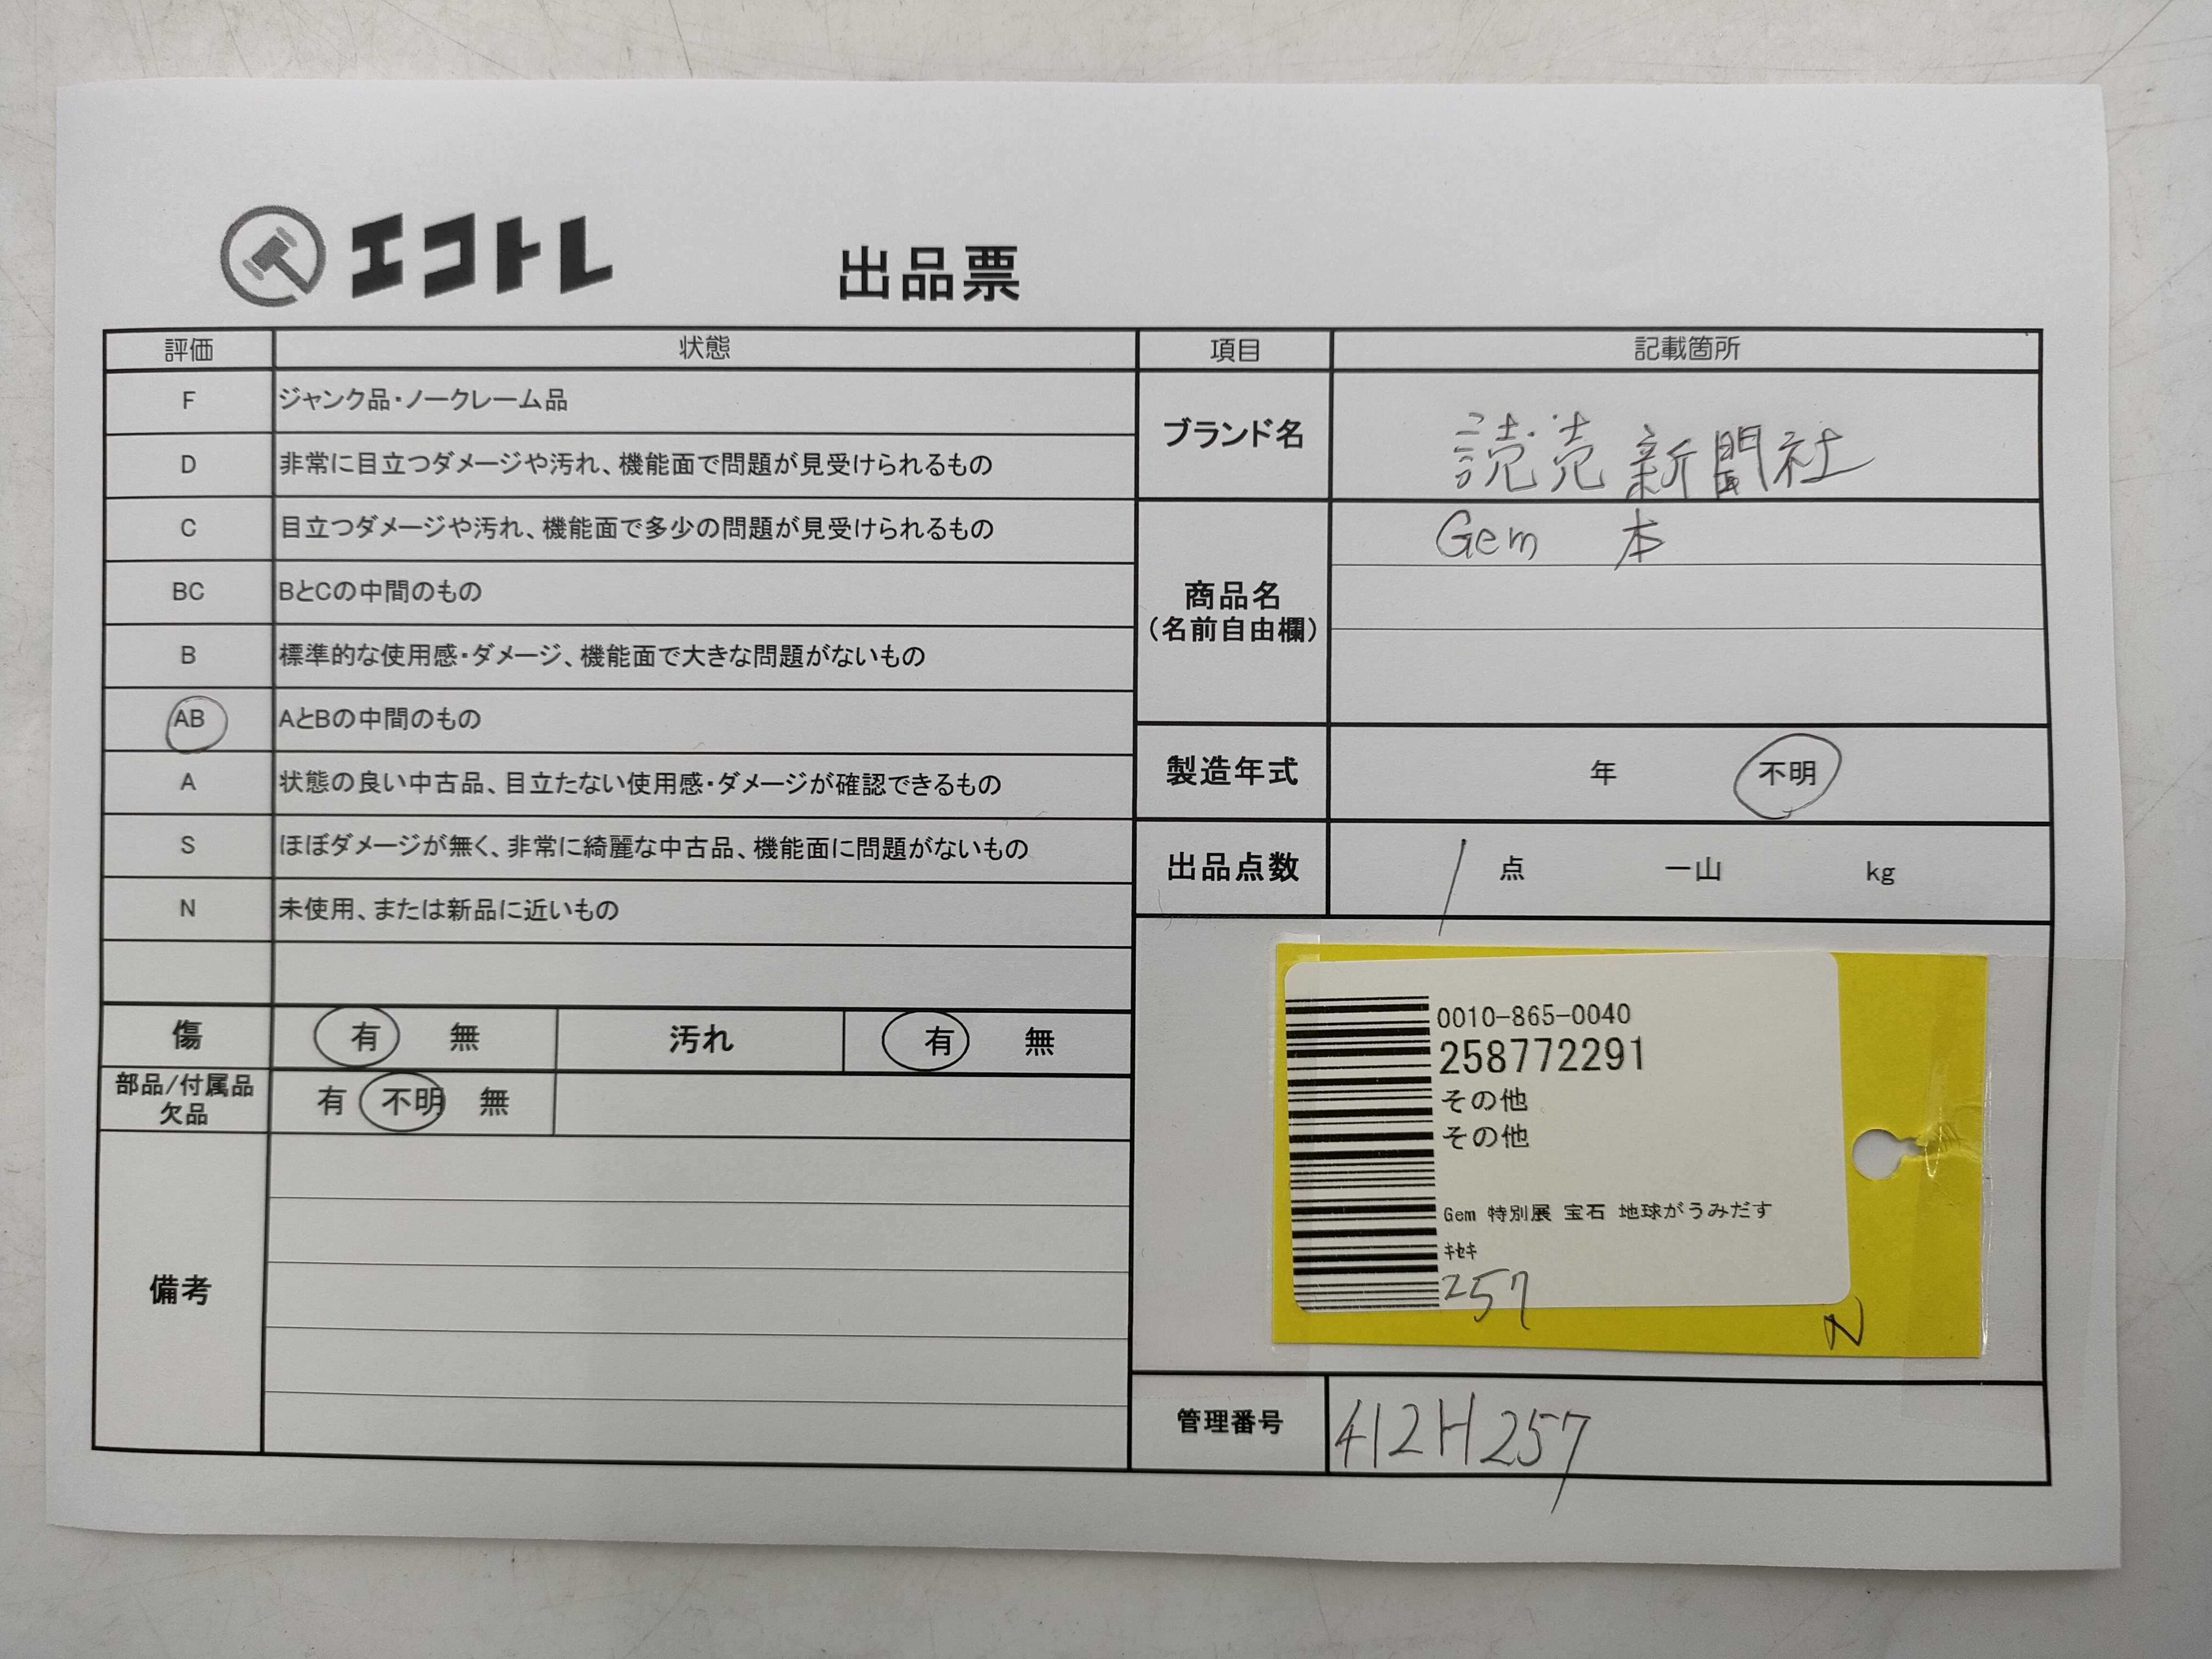 エコトレ
出品票
評価 状態
F ジャンク品・ノークレーム品
D 非常に目立つダメージや汚れ、機能面で問題が見受けられるもの
C 目立つダメージや汚れ、機能面で多少の問題が見受けられるもの
BC BとCの中間のもの
B 標準的な使用感・ダメージ、機能面で大きな問題がないもの
AB AとBの中間のもの
A 状態の良い中古品、目立たない使用感・ダメージが確認できるもの
S ほぼダメージが無く、非常に綺麗な中古品、機能面に問題がないもの
N 未使用、または新品に近いもの
傷 有 無 汚れ 有 無
部品/付属品
欠品
有 不明 無
備考
項目 記載箇所
ブランド名 読売新聞社
商品名
(名前自由欄)
Gem 本
製造年式 年 不明
出品点数 1 点 一山 kg
0010-865-0040
258772291
その他
その他
Gem 特別展 宝石 地球がうみだす
ｷｾｷ
257
N
管理番号 412H257